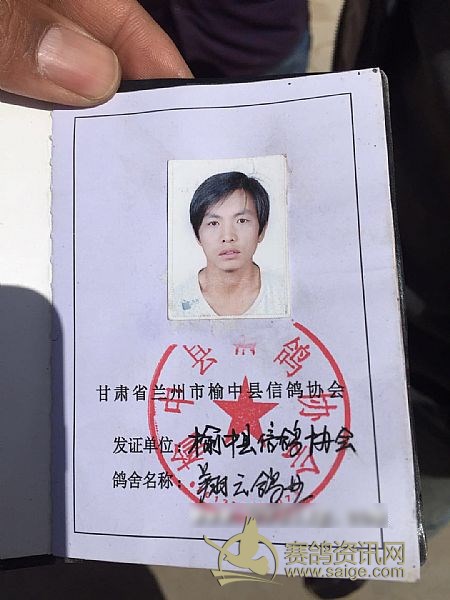 甘肃省兰州市榆中县信鸽协会
发证单位：榆中县信鸽协会
鸽舍名称：翔云鸽业
赛鸽资讯网
www.saige.com